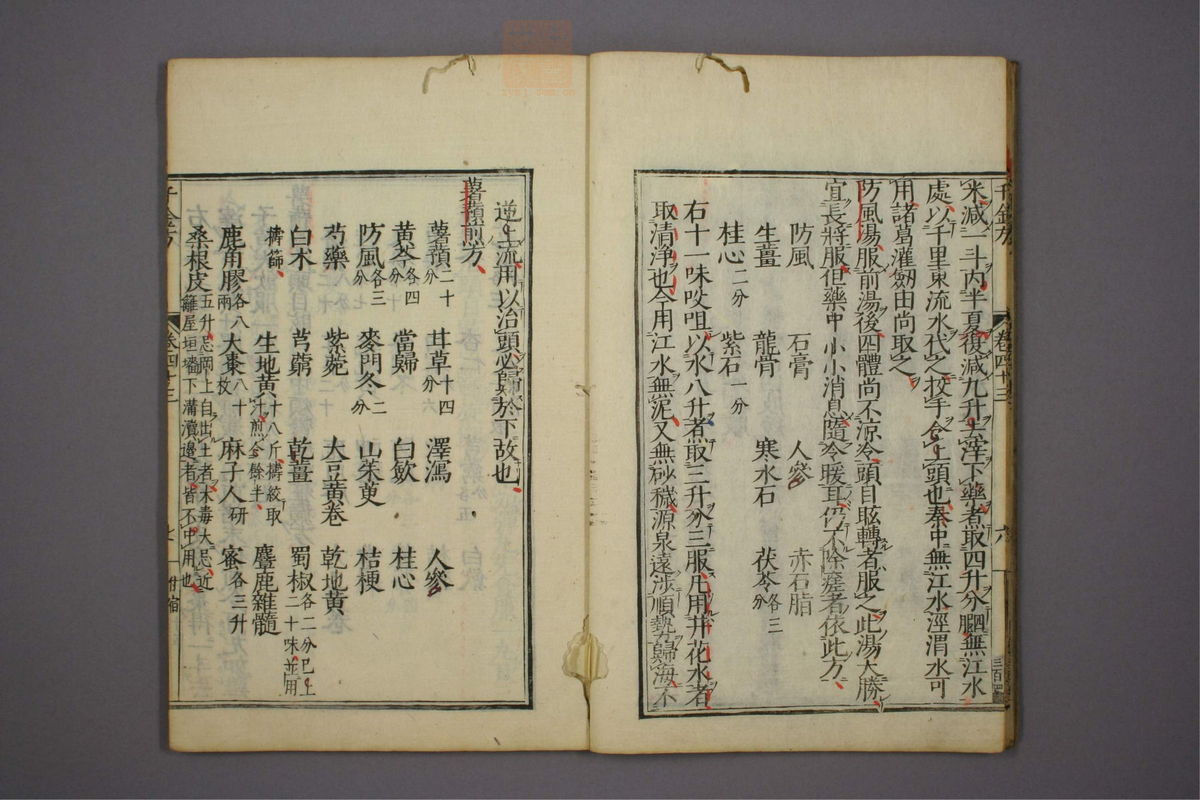 千金方 卷四十三 六
米減一斗內半夏復減九升去滓下藥煮取四升分服無江水
處以千里東流水代之投手令上頭也秦中無江水涇渭水可
用諸葛灌劒由尚取之
防風湯服前湯後四體尚不涼冷頭目眩轉者服之此湯大勝
宜長將服但藥中小小消息隨冷暖耳仍不除瘥者依此方
防風 石膏 人參 赤石脂
生薑 龍骨 寒水石 茯苓各三分
桂心二分 紫石一分
右十一味㕮咀以水八升煮取三升分三服凡用井花水者
取清淨也今用江水無泥又無砂穢源泉遠涉順勢歸海不
逆上流用以治頭必歸於下故也
薯蕷煎方
薯蕷二十分 甘草十四分 澤瀉 人參
黄芩各四分 當歸 白歛 桂心
防風各三分 麥門冬二分 山茱萸 桔梗
芍藥 紫菀 大豆黄卷 乾地黄
白术 芎藭 乾薑 蜀椒各二分巳上二十味並用
擣篩 生地黄十八斤擣絞取汁煎令餘半 麞鹿雜髓
鹿角膠各八兩 大棗八十枚 麻子人研 蜜各三升
桑根皮五升忌兩上自出土者木毒大忌近籬屋垣墻下溝瀆邊者皆不中用也
千金方 卷四十三 七 附宿